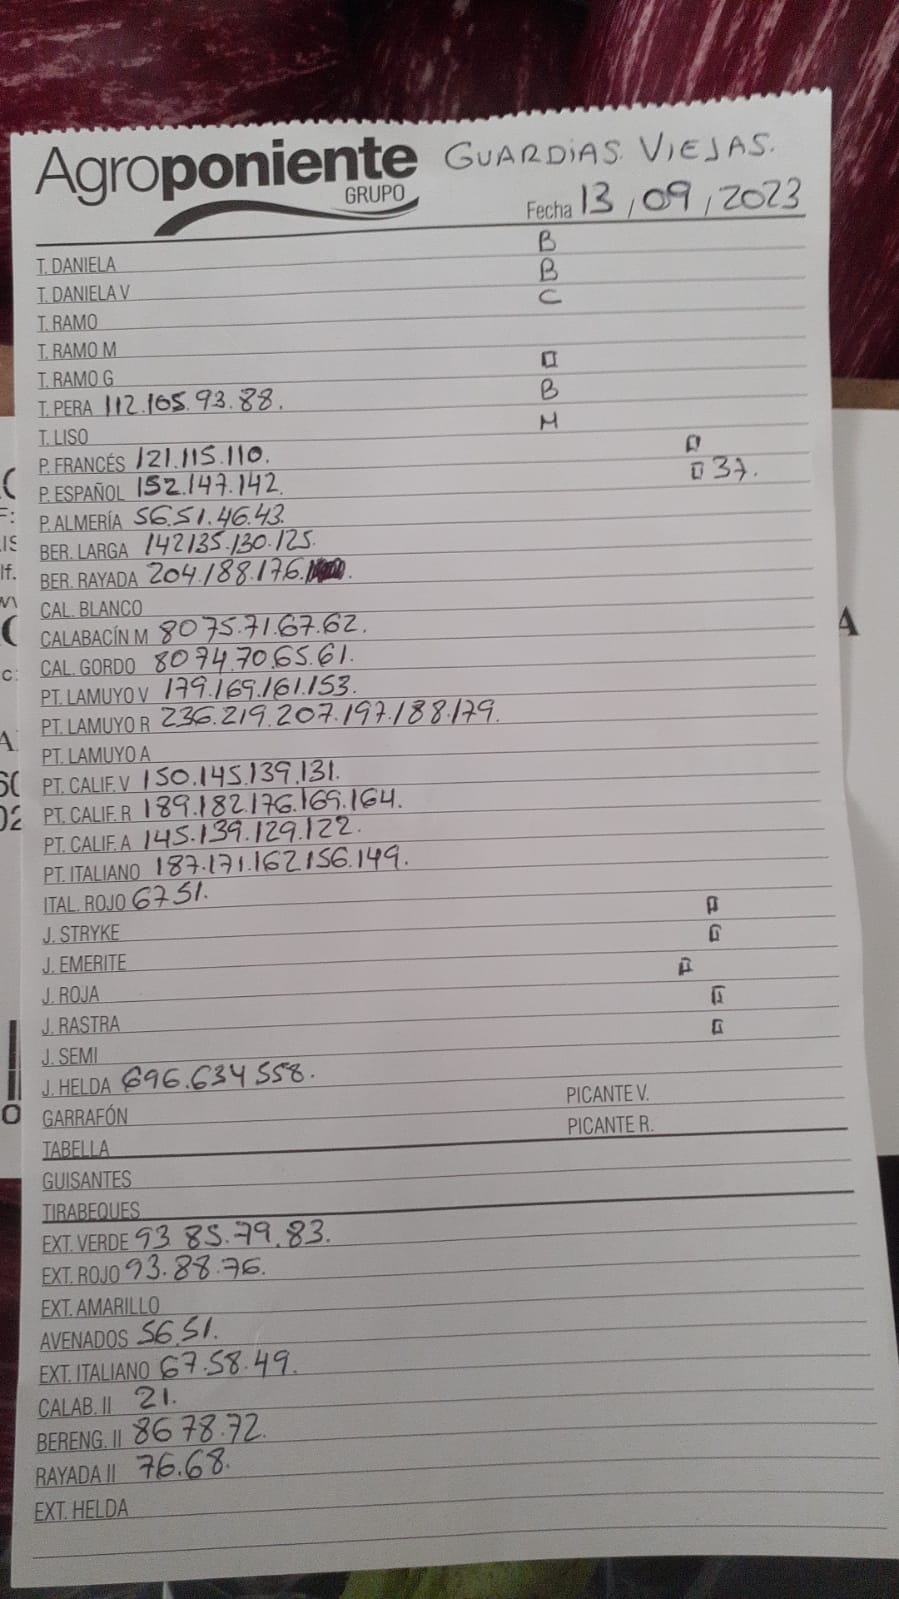 Agroponiente GUARDIAS VIEJAS.
GRUPO
Fecha 13/09/2023
T. DANIELA B
T. DANELA V B
T. RAMO C
T. RAMO M
T. RAMO G
T. PERA 112.105.93.88. B
T. LISO M
P. FRANCÉS 121.115.110.
P. ESPAÑOL 152.147.142. 37.
P. ALMERÍA 56.51.46.43.
BER. LARGA 142135.130.125.
BER. RAYADA 204.188.176.
CAL. BLANCO
CALABACÍN M 8075.71.67.62.
CAL. GORDO 8074.70.65.61.
PT. LAMUYO V 179.169.161.153.
PT. LAMUYO R 236.219.207.197.188.179.
PT. LAMUYO A
PT. CALIF. V 150.145.139.131.
PT. CALIF. R 189.182.176.169.164.
PT. CALIF. A 145.139.129.122.
PT. ITALIANO 187.171.162156.149.
ITAL. ROJO 6751.
J. STRYKE
J. EMERITE
J. ROJA
J. RASTRA
J. SEMI
J. HELDA 696.634 558.
GARRAFÓN PICANTE V.
TABELLA PICANTE R.
GUISANTES
TIRABEQUES
EXT. VERDE 93 85.79.83.
EXT. ROJO 93.88.76.
EXT. AMARILLO
AVENADOS 56.51.
EXT. ITALIANO 67.58.49.
CALAB. II 21.
BERENG. II 8678.72.
RAYADA II 76.68.
EXT. HELDA